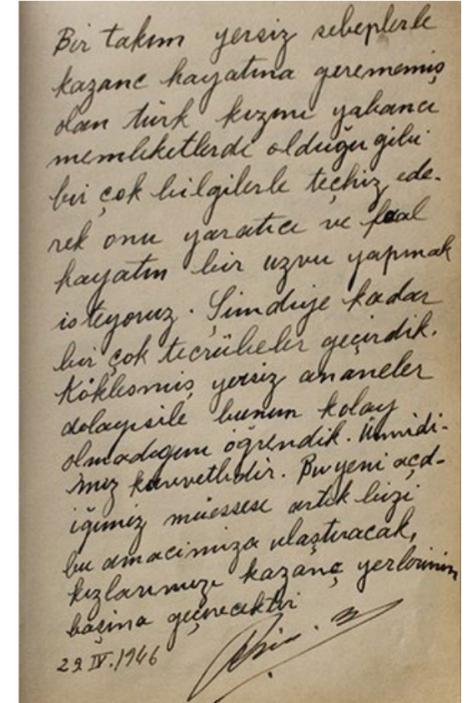 Bir takım yersiz sebeplerle
kazanc hayatına gerememiş
olan türk kızını yabancı
memleketlerde olduğu gibi
bir çok bilgilerle teçhiz ede-
rek onu yaratıcı ve faal
hayatın bir uzvu yapmak
istiyoruz. Şimdiye kadar
bir çok tecrübeler geçirdik.
Kökleşmiş yersiz ananeler
dolayısile bunun kolay
olmadığını öğrendik. Ümidi-
miz kuvvetlidir. Bu yeni açd-
iğimiz müessese artık bizi
bu amacimiza ulaştıracak,
kızlarımızı kazanç yerlerinin
başina geçirecektir
29.IV.1946